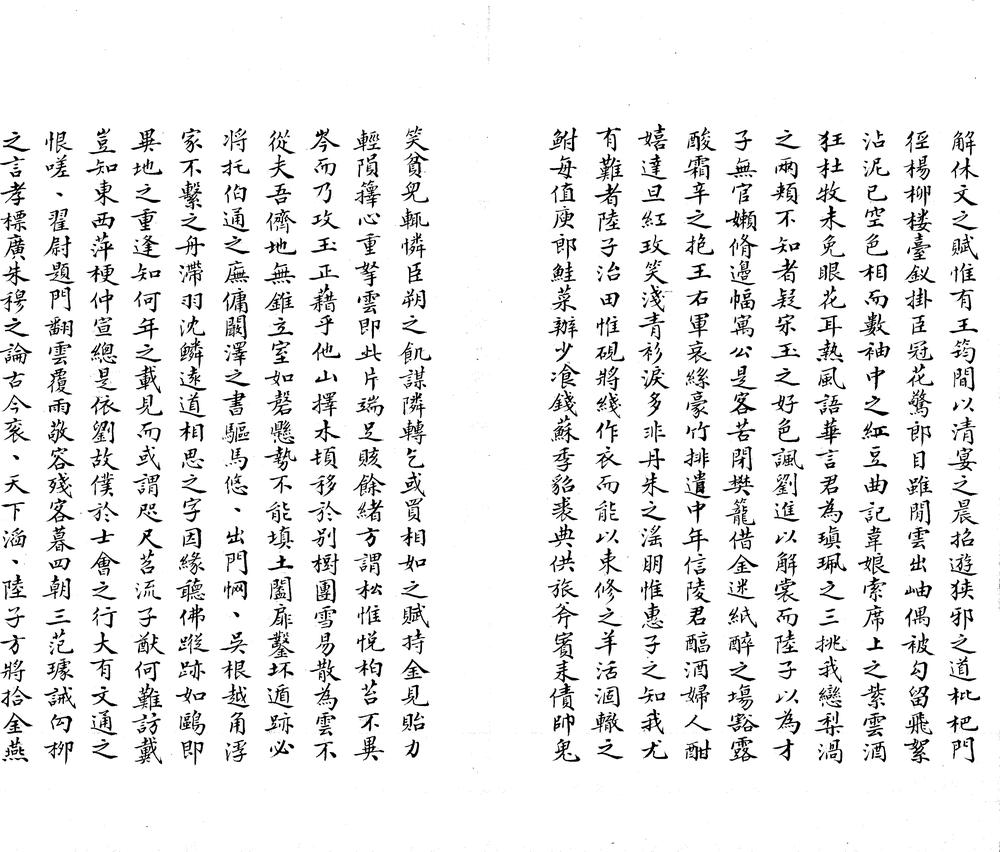 解休文之賦惟有王筠間以清宴之晨招遊狹邪之道枇杷門
徑楊柳楼臺釵掛臣冠花驚郎目雖閒雲出岫偶被勾留飛絮
沾泥已空色相而數袖中之紅豆曲記韋娘索席上之紫雲酒
狂杜牧未免眼花耳熱風語華言君為瑱珮之三挑我戀梨渦
之兩頰不知者疑宋玉之好色諷劉進以解裳而陸子以為才
子無官嬾脩邊幅寓公是客苦閉樊籠借金迷紙醉之場豁露
酸霜辛之抱王右軍哀絲豪竹排遣中年信陵君醇酒婦人酣
嬉達旦紅玫笑淺青衫淚多非丹朱之淫朋惟惠子之知我尤
有難者陸子治田惟硯將綫作衣而能以束修之羊活涸轍之
鮒每值庾郎鮭菜辦少飡錢蘇季貂裘典供旅斧賓耒債帥鬼
笑貧兒輒憐臣朔之飢謀隣轉乞或買相如之賦持金見貽力
輕隕籜心重拏雲即此片端足賅餘緒方謂松惟悅柏苔不異
岑而乃攻玉正藉乎他山擇木頃移於别樹團雪易散為雲不
從夫吾儕地無錐立室如罄懸勢不能填土闔扉鑿坏遁跡必
将托伯通之廡傭闞澤之書驅馬悠、出門惘、吳根越角浮
家不繫之舟滯羽沈鱗遠道相思之字因緣聽佛蹤跡如鷗即
異地之重逢知何年之載見而或謂咫尺苕流子猷何難訪戴
豈知東西萍梗仲宣總是依劉故僕於士會之行大有文通之
恨嗟、翟尉題門翻雲覆雨敬容殘客暮四朝三范璩誡勾柳
之言孝標廣朱穆之論古今衮、天下滔、陸子方將拾金燕